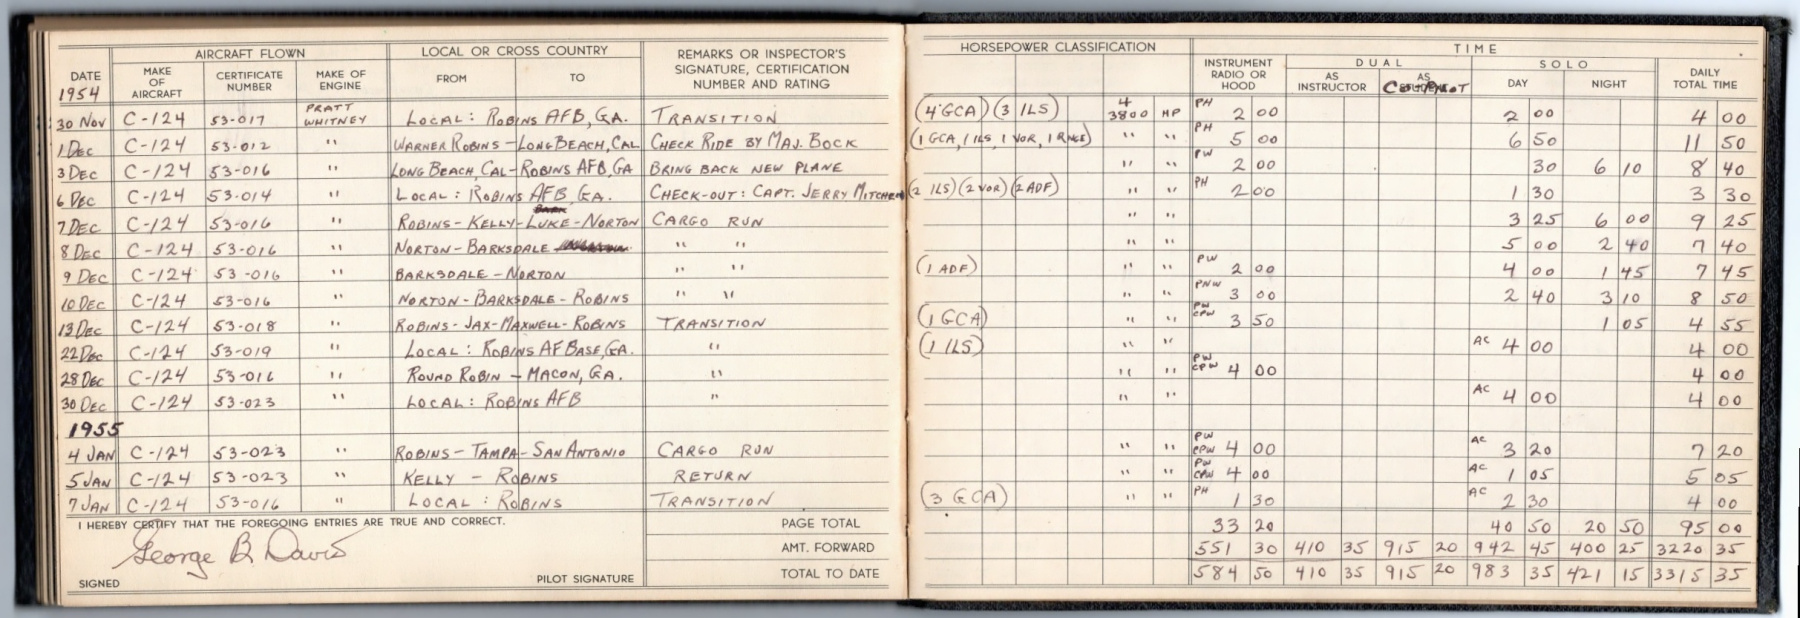 AIRCRAFT FLOWN LOCAL OR CROSS COUNTRY REMARKS OR INSPECTOR'S SIGNATURE, CERTIFICATION NUMBER AND RATING
DATE 1954 MAKE OF AIRCRAFT CERTIFICATE NUMBER MAKE OF ENGINE FROM TO
30 NOV C-124 53-017 PRATT WHITNEY LOCAL: ROBINS AFB, GA. TRANSITION
1 DEC C-124 53-012 " " WARNER ROBINS - LONG BEACH, CAL CHECK RIDE BY MAJ. BOCK
3 DEC C-124 53-016 " " LONG BEACH, CAL - ROBINS AFB, GA BRING BACK NEW PLANE
6 DEC C-124 53-014 " " LOCAL: ROBINS AFB, GA. CHECK-OUT: CAPT. JERRY MITCHEM
7 DEC C-124 53-016 " " ROBINS - KELLY - LUKE - NORTON CARGO RUN
8 DEC C-124 53-016 " " NORTON - BARKSDALE " "
9 DEC C-124 53-016 " " BARKSDALE - NORTON " "
10 DEC C-124 53-016 " " NORTON - BARKSDALE - ROBINS " "
13 DEC C-124 53-018 " " ROBINS - JAX - MAXWELL - ROBINS TRANSITION
22 DEC C-124 53-019 " " LOCAL: ROBINS AF BASE, GA. "
28 DEC C-124 53-016 " " ROUND ROBIN - MACON, GA. "
30 DEC C-124 53-023 " " LOCAL: ROBINS AFB "
1955
4 JAN C-124 53-023 " " ROBINS - TAMPA - SAN ANTONIO CARGO RUN
5 JAN C-124 53-023 " " KELLY - ROBINS RETURN
7 JAN C-124 53-016 " LOCAL: ROBINS TRANSITION
I HEREBY CERTIFY THAT THE FOREGOING ENTRIES ARE TRUE AND CORRECT. PAGE TOTAL
George B Davis AMT. FORWARD
SIGNED PILOT SIGNATURE TOTAL TO DATE
HORSEPOWER CLASSIFICATION TIME
INSTRUMENT RADIO OR HOOD DUAL SOLO DAILY TOTAL TIME
AS INSTRUCTOR AS CO-PILOT DAY NIGHT
(4 GCA) (3 ILS) 4 3800 HP PH 2 00 2 00 4 00
(1 GCA, 1 ILS, 1 VOR, 1 RNGE) " " PH 5 00 6 50 11 50
" " PW 2 00 30 6 10 8 40
(2 ILS) (2 VOR) (2 ADF) " " PH 2 00 1 30 3 30
" " 3 25 6 00 9 25
" " 5 00 2 40 7 40
(1 ADF) " " PW 2 00 4 00 1 45 7 45
" " PNW 3 00 2 40 3 10 8 50
(1 GCA) " " PW CPW 3 50 1 05 4 55
(1 ILS) " " AC 4 00 4 00
" " PW CPW 4 00 4 00
" " AC 4 00 4 00
" " PW CPW 4 00 AC 3 20 7 20
" " PW CPW 4 00 AC 1 05 5 05
(3 GCA) " " PH 1 30 AC 2 30 4 00
33 20 40 50 20 50 95 00
551 30 410 35 915 20 942 45 400 25 3220 35
584 50 410 35 915 20 983 35 421 15 3315 35